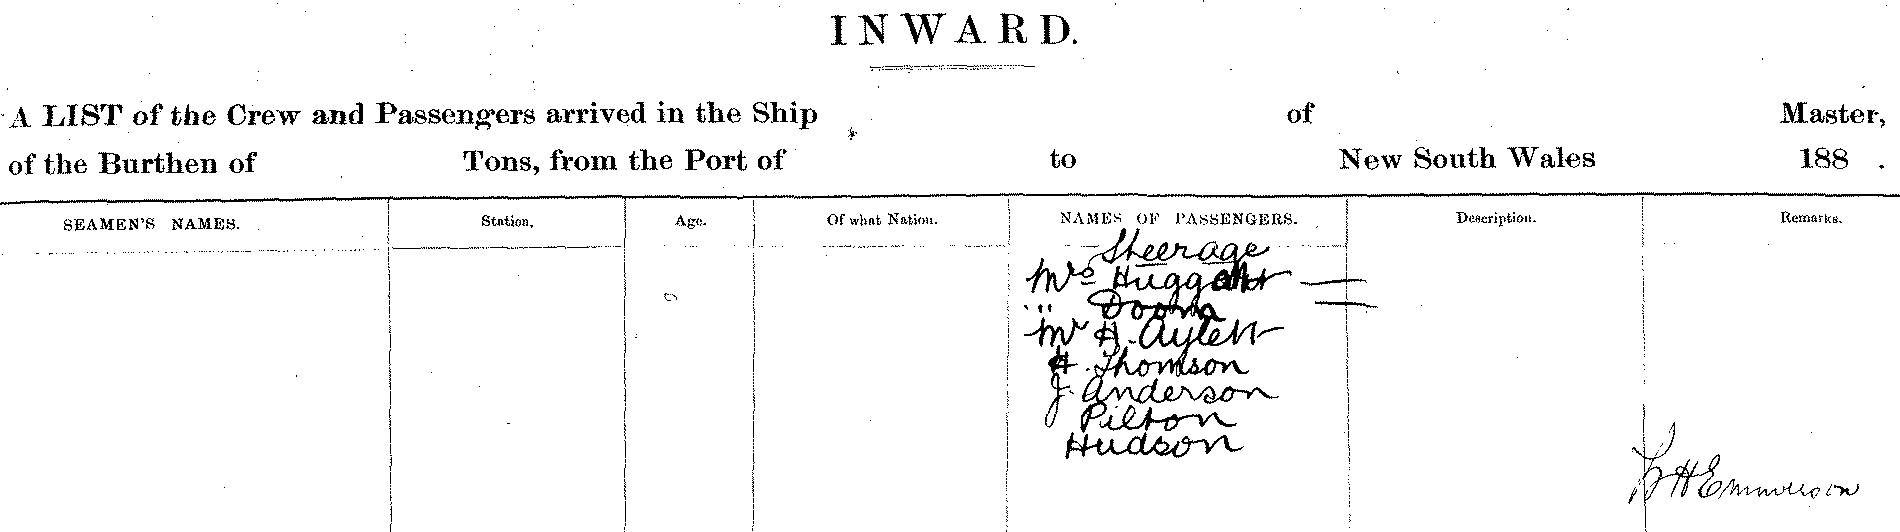 INWARD.
A LIST of the Crew and Passengers arrived in the Ship of Master,
of the Burthen of Tons, from the Port of to New South Wales 188 .
SEAMEN'S NAMES. Station. Age. Of what Nation. NAMES OF PASSENGERS. Description. Remarks.
Steerage
Mrs
" Doorn
Mr H. Aylett
H. Thomson
J. Anderson
Pilton
Hudson
H Emmerson